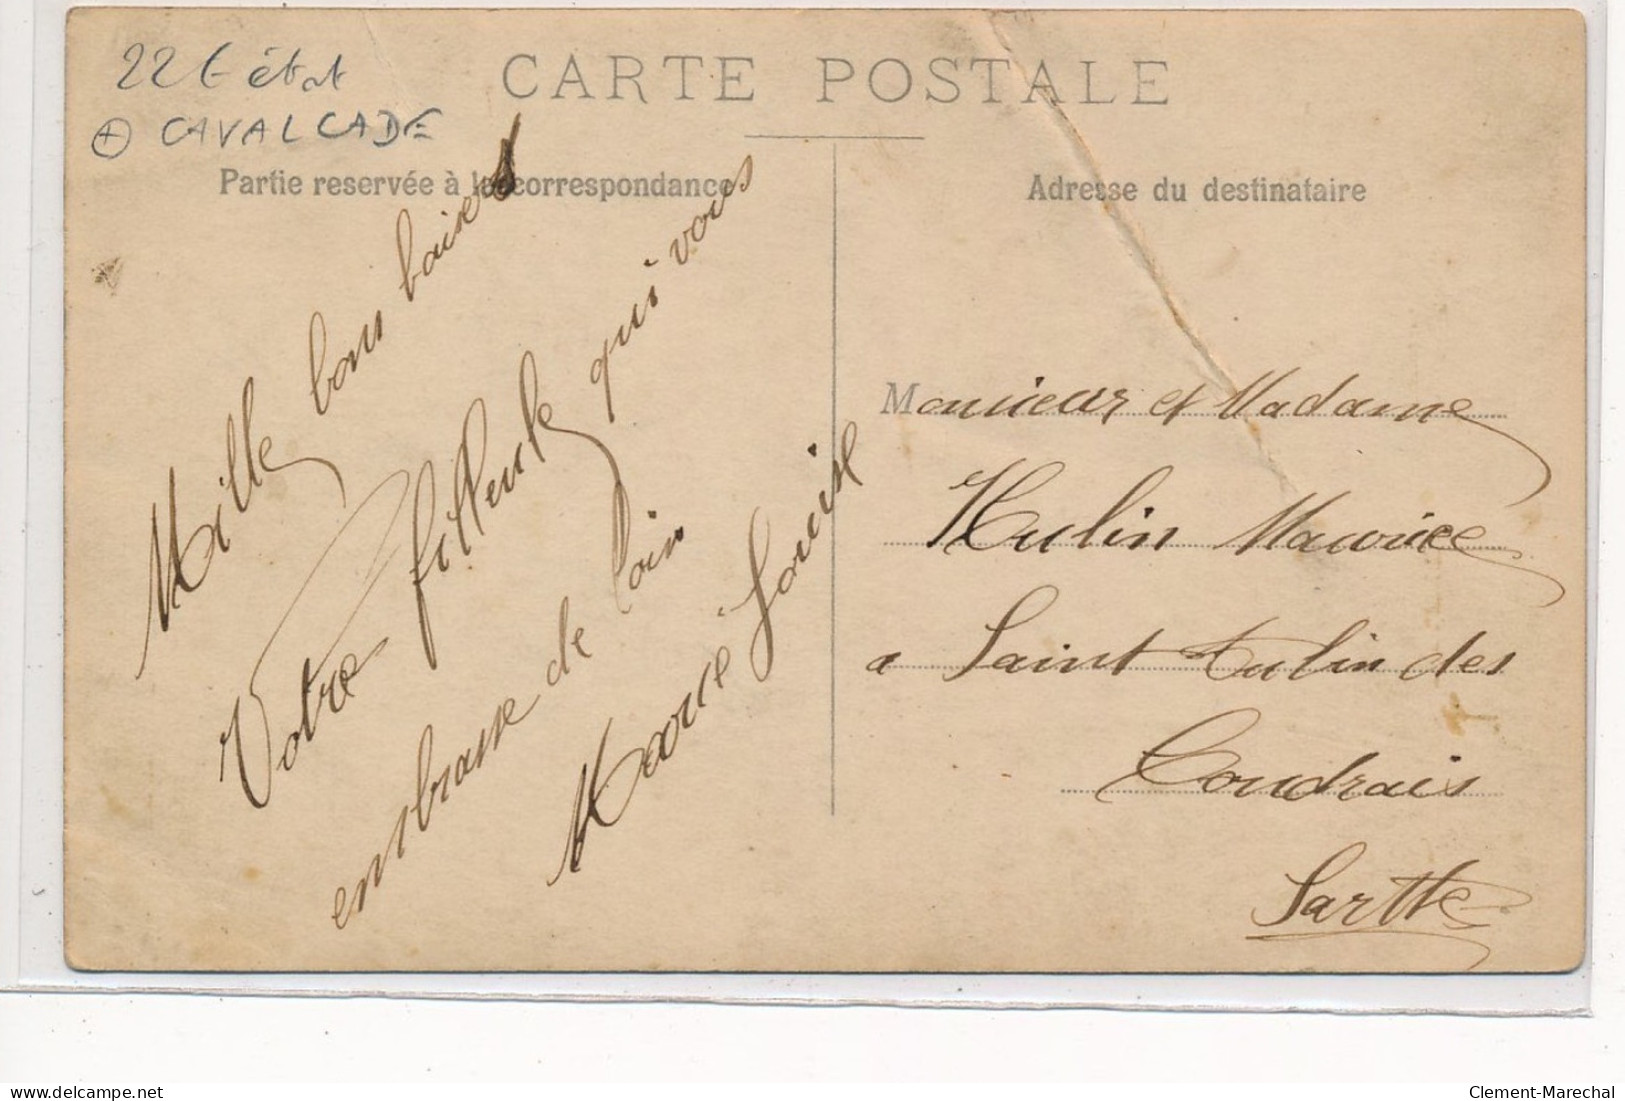 22 € état
+ CAVALCADE
CARTE POSTALE
Partie reservée à la correspondance
Mille bon baisers
Votre filleule qui vous
embrasse de loin
Marie Louise
Adresse du destinataire
Monsieur et Madame
Hulin Maurice
a Saint Aulin des
Coudrais
Sarthe
www.delcampe.net
Clement-Marechal